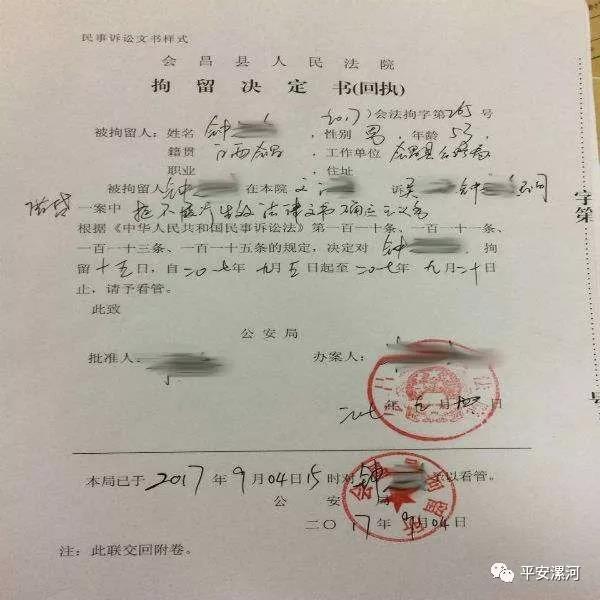 民事诉讼文书样式
会昌县人民法院
拘留决定书(回执)
(2017)会法拘字第265号
被拘留人:姓名 钟 ,性别 男,年龄 53,
籍贯 江西会昌,工作单位 会昌县
职业 ,住址
被拘留人 钟 在本院 诉 钟
借贷一案中 拒不履行生效法律文书确定之义务
根据《中华人民共和国民事诉讼法》第一百一十条、一百一十一条、
一百一十三条、一百一十五条的规定,决定对 钟 拘
留十五日,自二〇一七年九月五日起至二〇一七年九月二十日
止,请予看管。
此致
公安局
批准人: 办案人:
二〇一七年九月四日
本局已于2017年9月04日15时对 钟 予以看管。
公安局
二〇17年9月04日
注:此联交回附卷。
字第
号
平安漯河